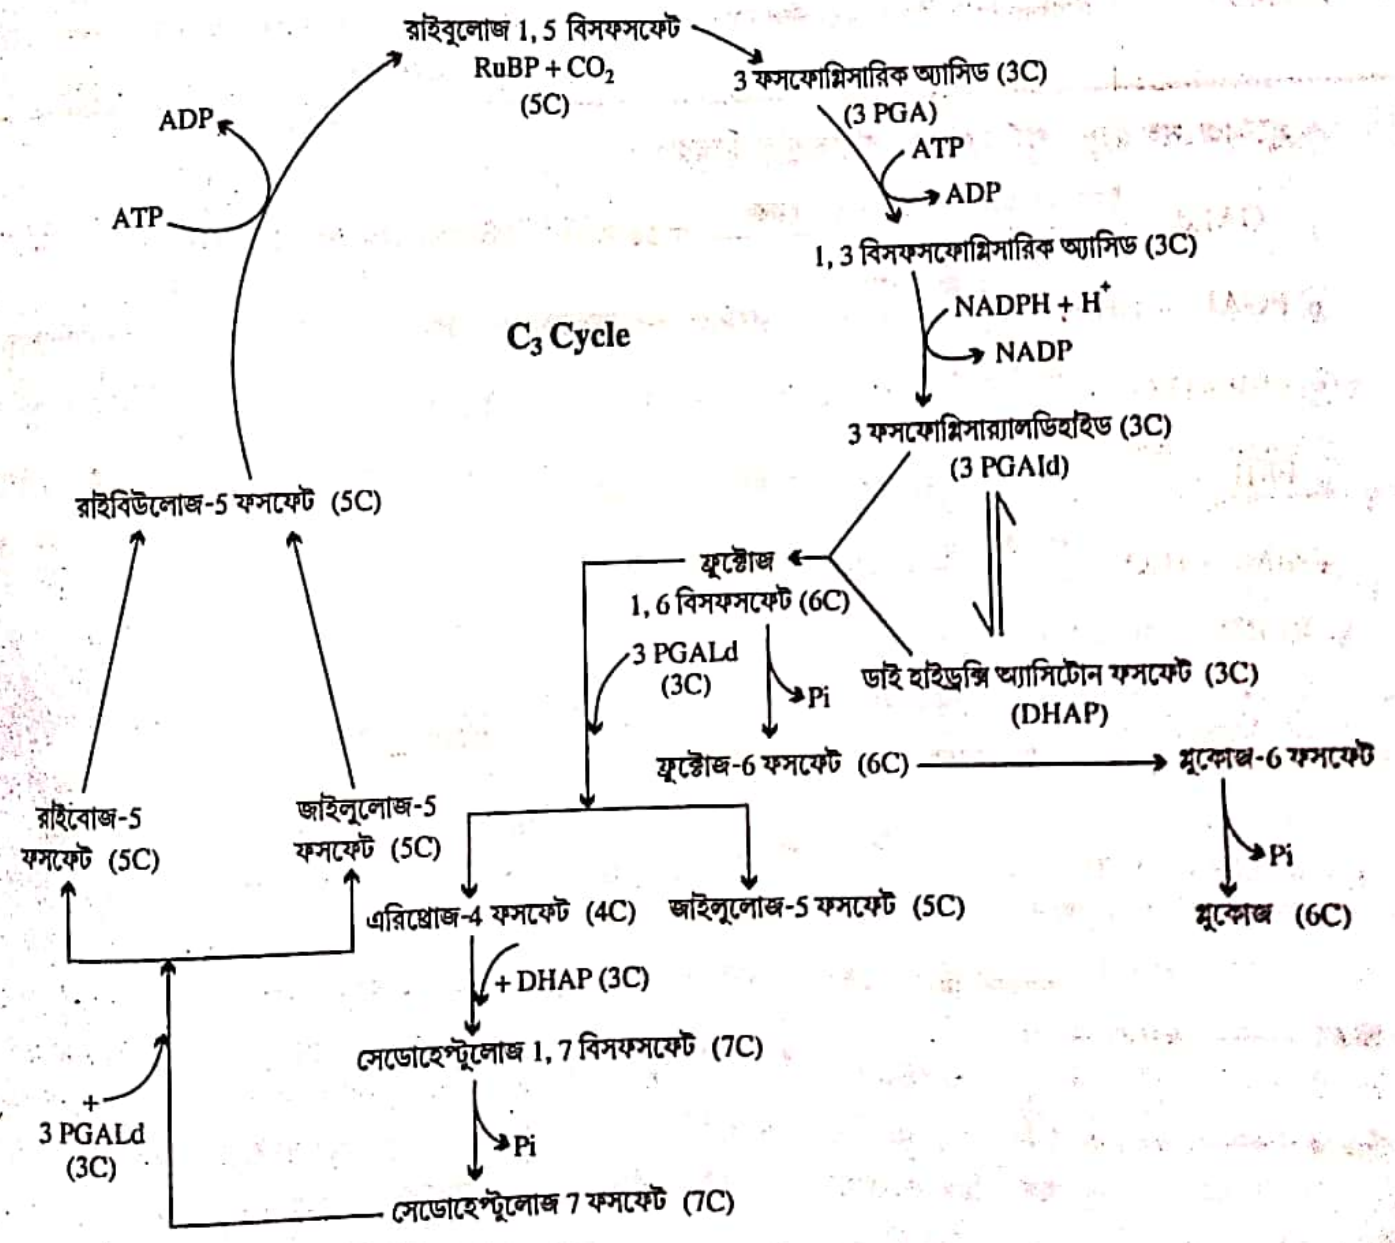 রাইবুলোজ 1, 5 বিসফসফেট
RuBP + CO₂
(5C)
3 ফসফোগ্লিসারিক অ্যাসিড (3C)
(3 PGA)
ADP
ATP
ATP
ADP
1, 3 বিসফসফোগ্লিসারিক অ্যাসিড (3C)
NADPH + H⁺
NADP
C₃ Cycle
3 ফসফোগ্লিসার‍্যালডিহাইড (3C)
(3 PGAld)
রাইবিউলোজ-5 ফসফেট (5C)
ফ্রুক্টোজ
1, 6 বিসফসফেট (6C)
3 PGALd
(3C)
Pi
ডাই হাইড্রক্সি অ্যাসিটোন ফসফেট (3C)
(DHAP)
ফ্রুক্টোজ-6 ফসফেট (6C)
গ্লুকোজ-6 ফসফেট
Pi
গ্লুকোজ (6C)
রাইবোজ-5
ফসফেট (5C)
জাইলুলোজ-5
ফসফেট (5C)
এরিথ্রোজ-4 ফসফেট (4C)
জাইলুলোজ-5 ফসফেট (5C)
+ DHAP (3C)
সেডোহেপ্টুলোজ 1, 7 বিসফসফেট (7C)
+
3 PGALd
(3C)
Pi
সেডোহেপ্টুলোজ 7 ফসফেট (7C)